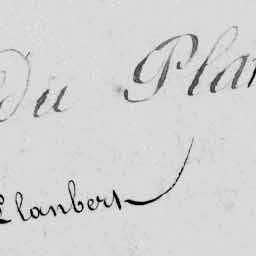 Du Plan
Llanbert